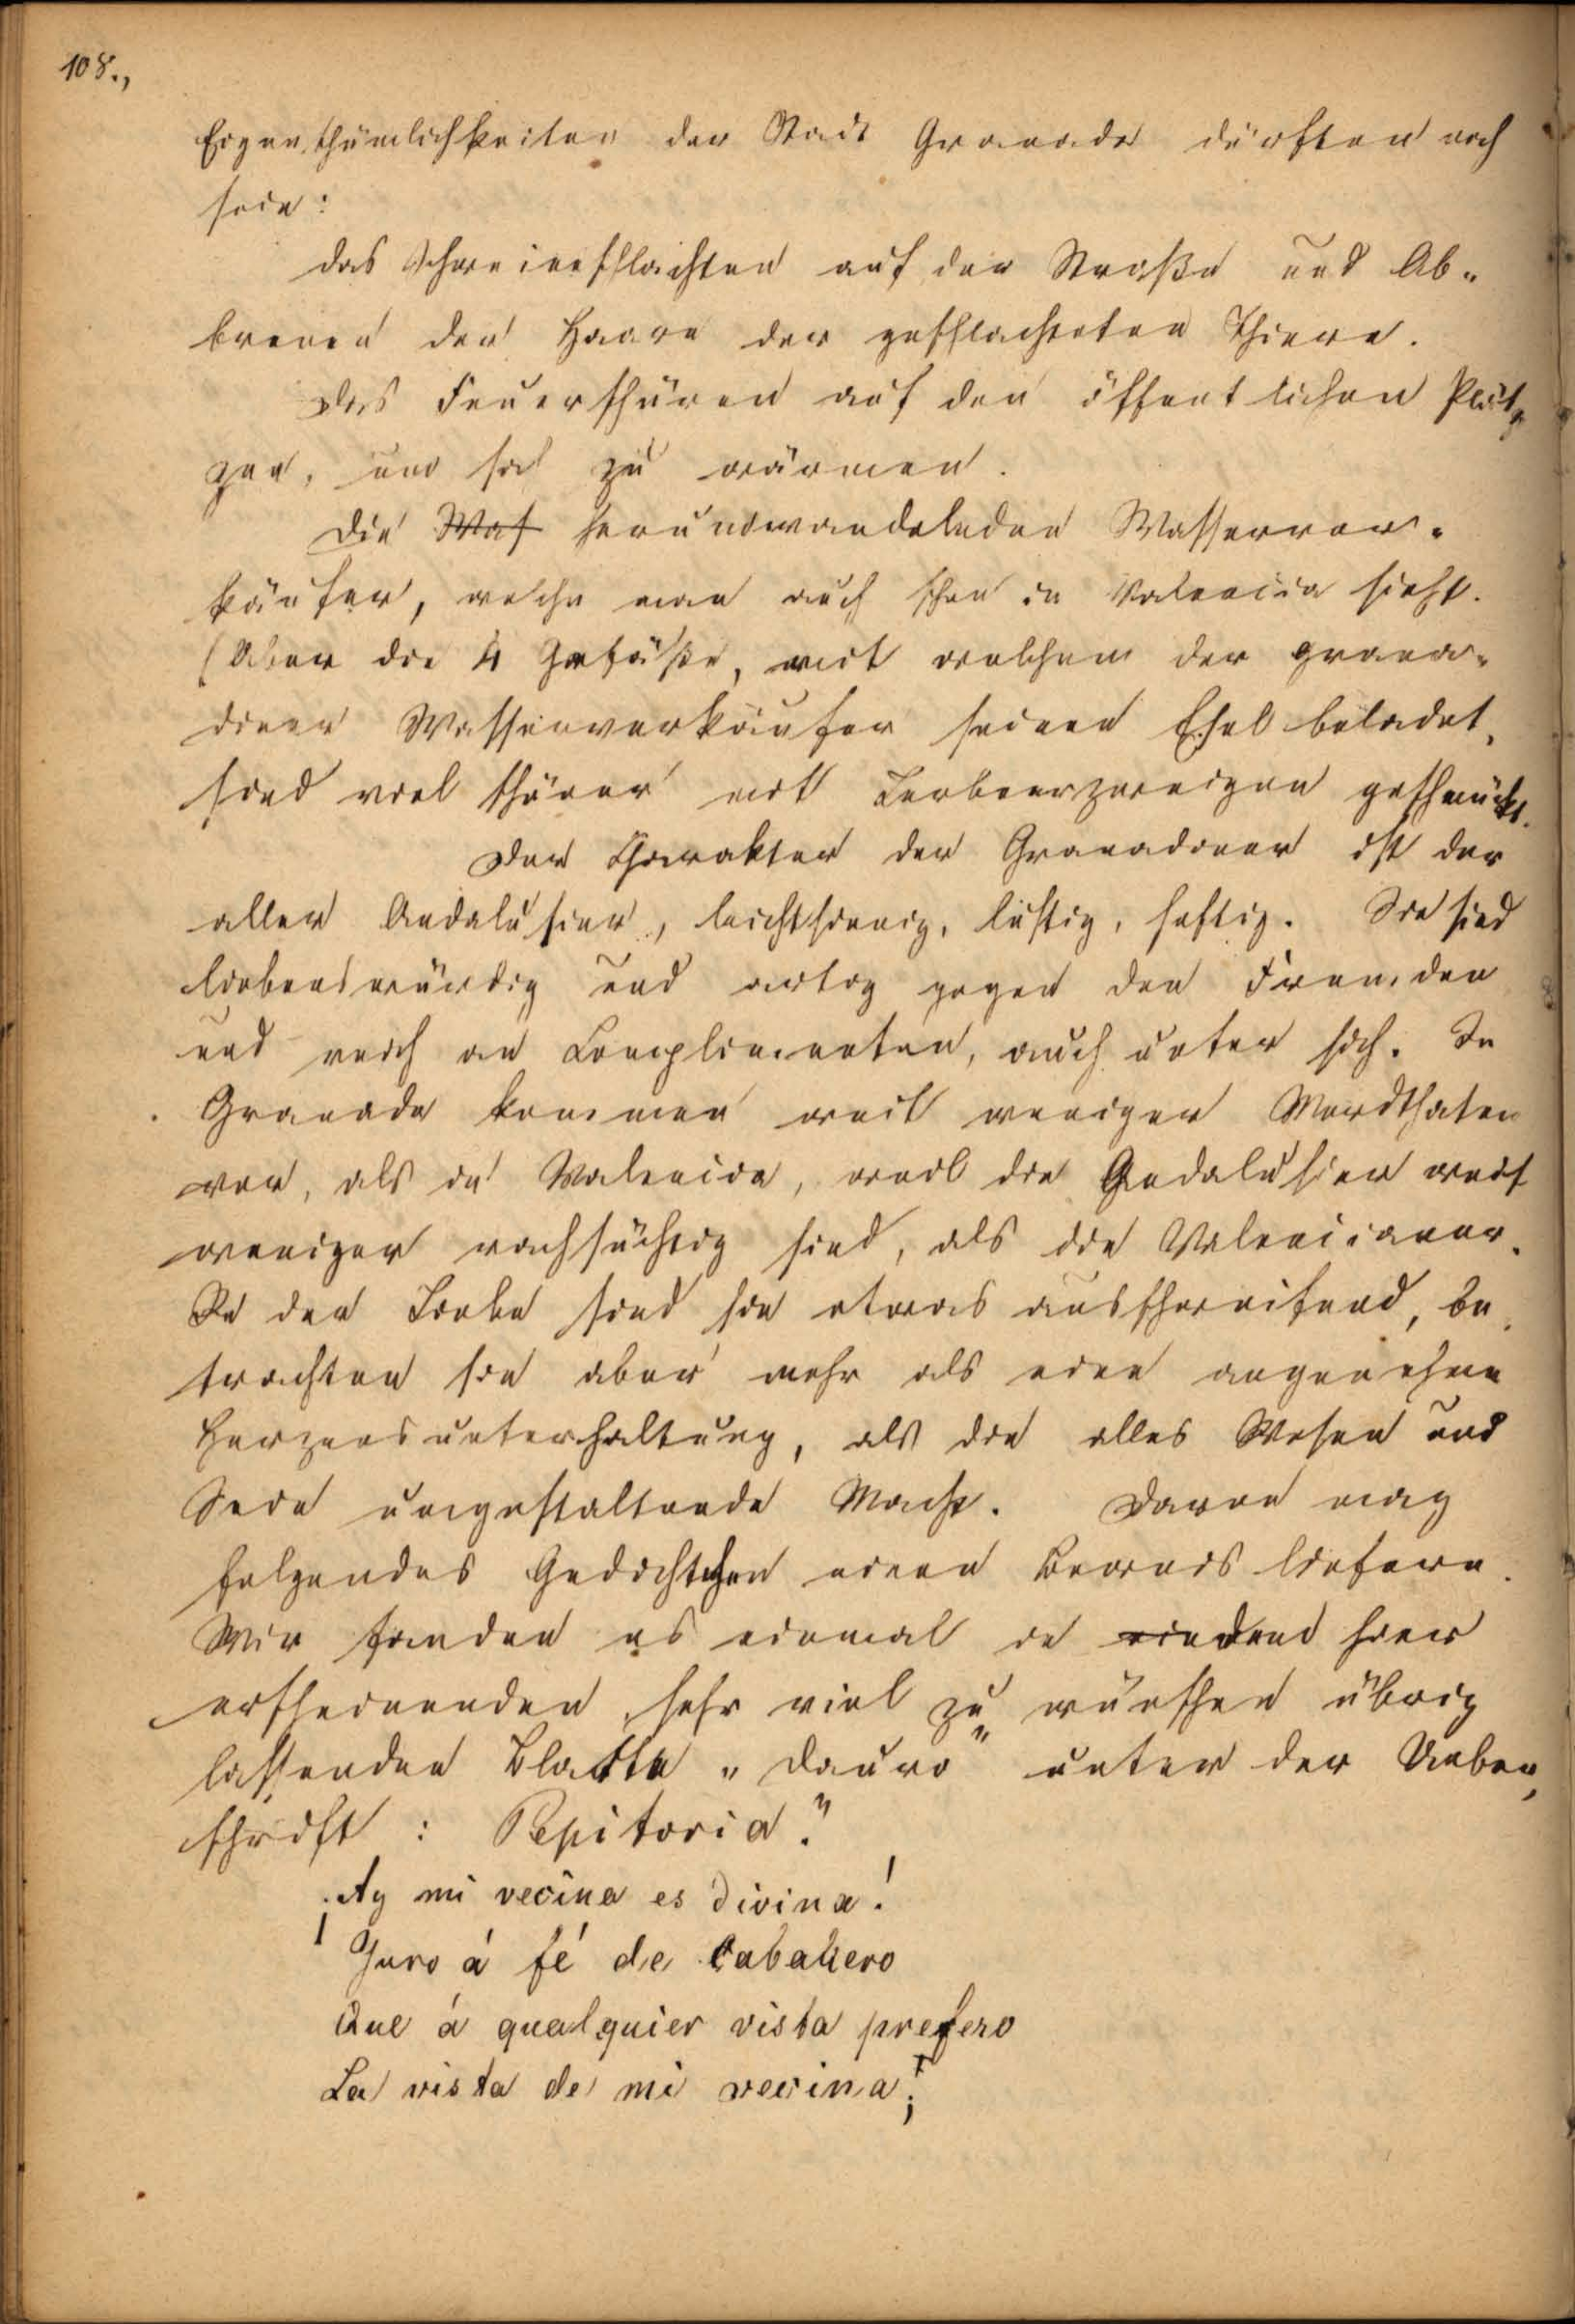 108.,
Eigenthümlichkeiten der Stadt Granada dürften noch
sein:
das Schweineschlachten auf der Straße und Ab-
brenen der Haare der geschlachteten Thiere.
Das Feuerschüren auf den öffentlichen Plät-
zen, um sich zu wärmen.
Die Waß herumwandelnden Wasserver-
käufer, welche man auch schon in Valencia sieht.
(Aber die 4 Gefäße, mit welchem der grana-
diner Wasserverkäufer seinen Esel beladet,
sind viel schöner mit Lorbeerzweigen geschmückt.
Der Charakter der Granadiner ist der
aller Andalusier, leichtsinnig, lustig, heftig. Sie sind
liebenswürdig und artig gegen den Fremden
und reich an Complimenten, auch unter sich. In
Granada kommen weit weniger Mordthaten
vor, als in Valencia, weil die Andalusier weit
weniger rachsüchtig sind, als die Valencianer.
In der Liebe sind sie etwas ausschweifend, be-
trachten sie aber mehr als eine angenehme
Herzensunterhaltung, als die alles Wesen und
Sein umgestaltende Macht. Davon mag
folgendes Gedichtchen einen Beweis liefern.
Wir fanden es einmal in hier
erscheinenden, sehr viel zu wünschen übrig
lassenden Blatte "Dauro" unter der Ueber-
schrift: Pepitoria."
¡Ay mi vecina es divina!
Juro á fé de Caballero
Que á qualquier vista prefero
La vista de mi vecina;